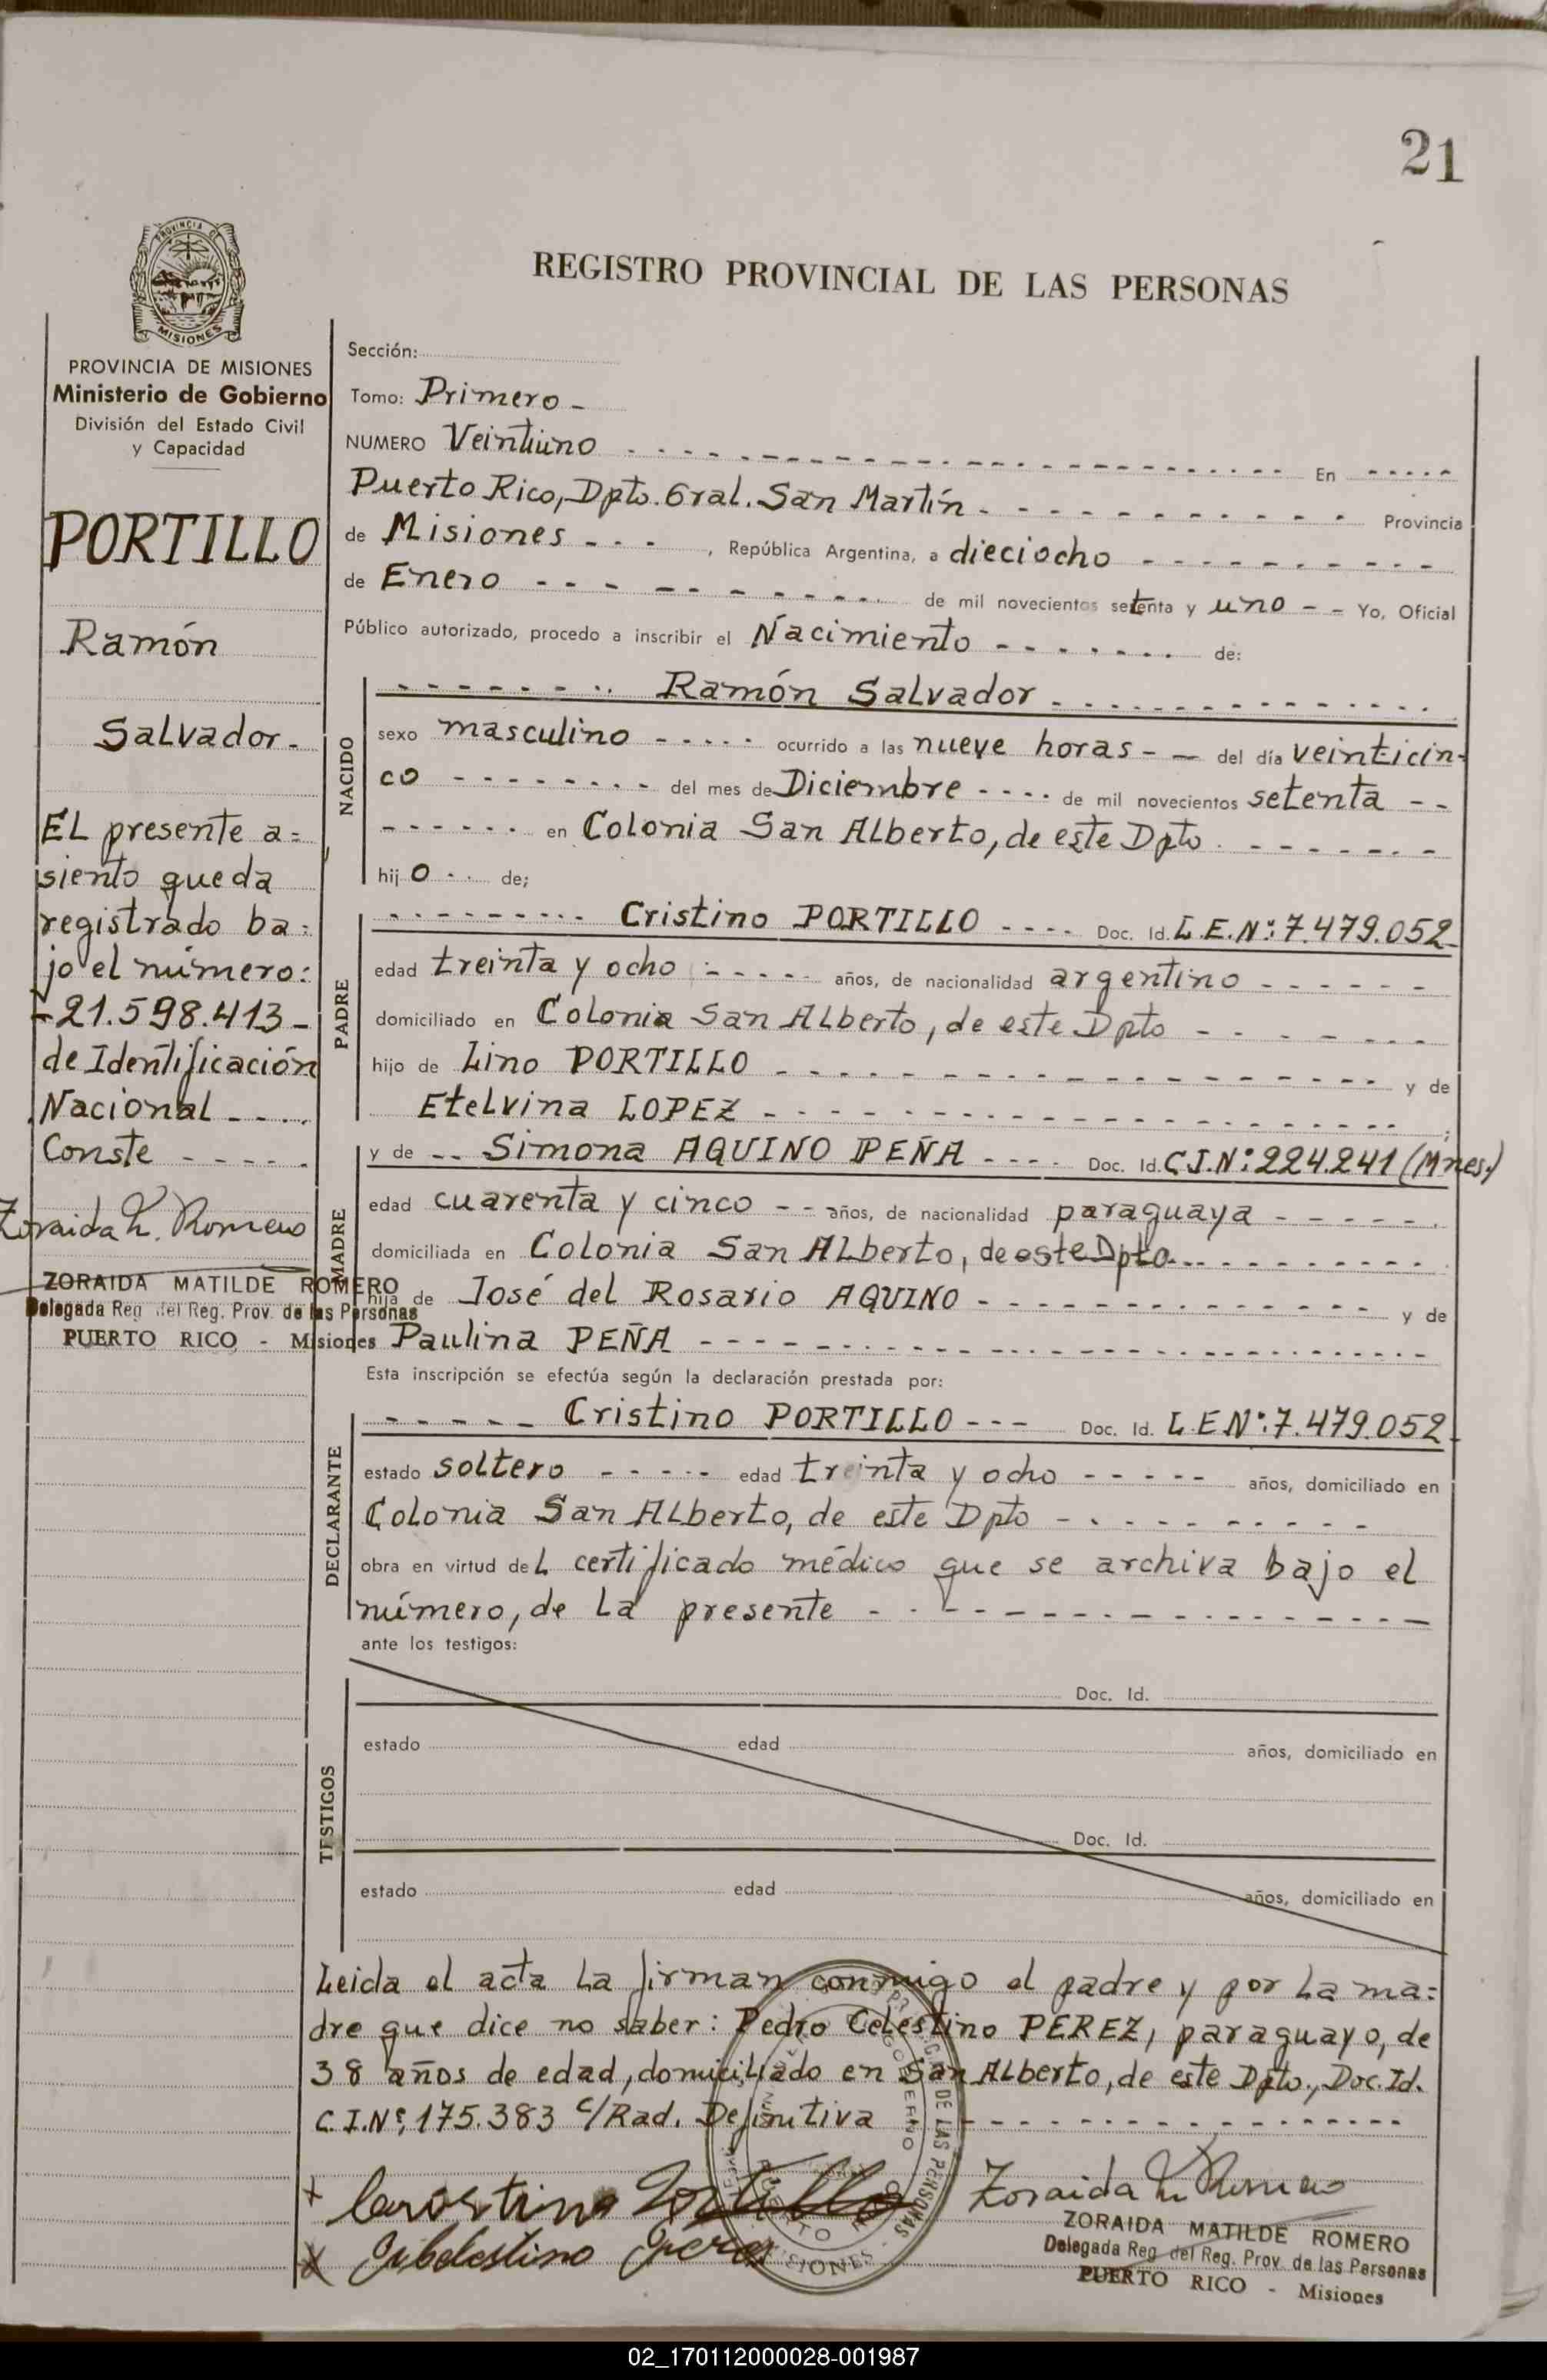 21
PROVINCIA DE
MISIONES
REGISTRO PROVINCIAL DE LAS PERSONAS
PROVINCIA DE MISIONES
Ministerio de Gobierno
División del Estado Civil
y Capacidad
PORTILLO
Ramón
Salvador.-
EL presente a=
siento queda
registrado ba=
jo el número:
-21.598.413-
de Identificación
Nacional - - - -
Conste - - - - -
Zoraida M. Romero
ZORAIDA MATILDE ROMERO
Delegada Reg del Reg. Prov. de las Personas
PUERTO RICO - Misiones
Sección:
Tomo: Primero -
NUMERO Veintiuno - - - - - En - - - - -
Puerto Rico, Dpto. Gral. San Martín. - - - - - Provincia
de Misiones - - - , República Argentina, a dieciocho - - - - -
de Enero - - - - - de mil novecientos setenta y uno - - Yo, Oficial
Público autorizado, procedo a inscribir el Nacimiento - - - - - de:
NACIDO
- - - - - Ramón Salvador - - - - -
sexo masculino - - - - - ocurrido a las nueve horas - - del día veinticin-
co - - - - - del mes de Diciembre - - - - de mil novecientos setenta - -
- - - - - en Colonia San Alberto, de este Dpto. - - - - -
hijo - - de;
PADRE
- - - - - Cristino PORTILLO - - - - Doc. Id. L.E.Nº: 7.479.052-
edad treinta y ocho - - - - - años, de nacionalidad argentino - - - - -
domiciliado en Colonia San Alberto, de este Dpto - - - - -
hijo de Lino PORTILLO - - - - - y de
Etelvina LOPEZ - - - - - ;
MADRE
y de - - Simona AQUINO PEÑA - - - - Doc. Id. C.I.Nº: 224.241 (Mnes.)
edad cuarenta y cinco - - años, de nacionalidad paraguaya - - - - -
domiciliada en Colonia San Alberto, de este Dpto. - - - - -
hija de José del Rosario AQUINO - - - - - y de
Paulina PEÑA - - - - -
Esta inscripción se efectúa según la declaración prestada por:
DECLARANTE
- - - - - Cristino PORTILLO - - - Doc. Id. L.E Nº: 7.479.052-
estado soltero - - - - - edad treinta y ocho - - - - - años, domiciliado en
Colonia San Alberto, de este Dpto - - - - -
obra en virtud del certificado médico que se archiva bajo el
número, de la presente - - - - -
ante los testigos:
TESTIGOS
Doc. Id.
estado edad años, domiciliado en
Doc. Id.
estado edad años, domiciliado en
Leida el acta la firman conmigo el padre y por la ma=
dre que dice no saber: Pedro Celestino PEREZ, paraguayo, de
38 años de edad, domiciliado en San Alberto, de este Dpto., Doc. Id.
C.I.Nº: 175.383 c/Rad. Definitiva - - - - -
DE LAS PERSONAS
MISIONES
Zoraida M. Romero
ZORAIDA MATILDE ROMERO
Delegada Reg del Reg. Prov. de las Personas
PUERTO RICO - Misiones
02_170112000028-001987